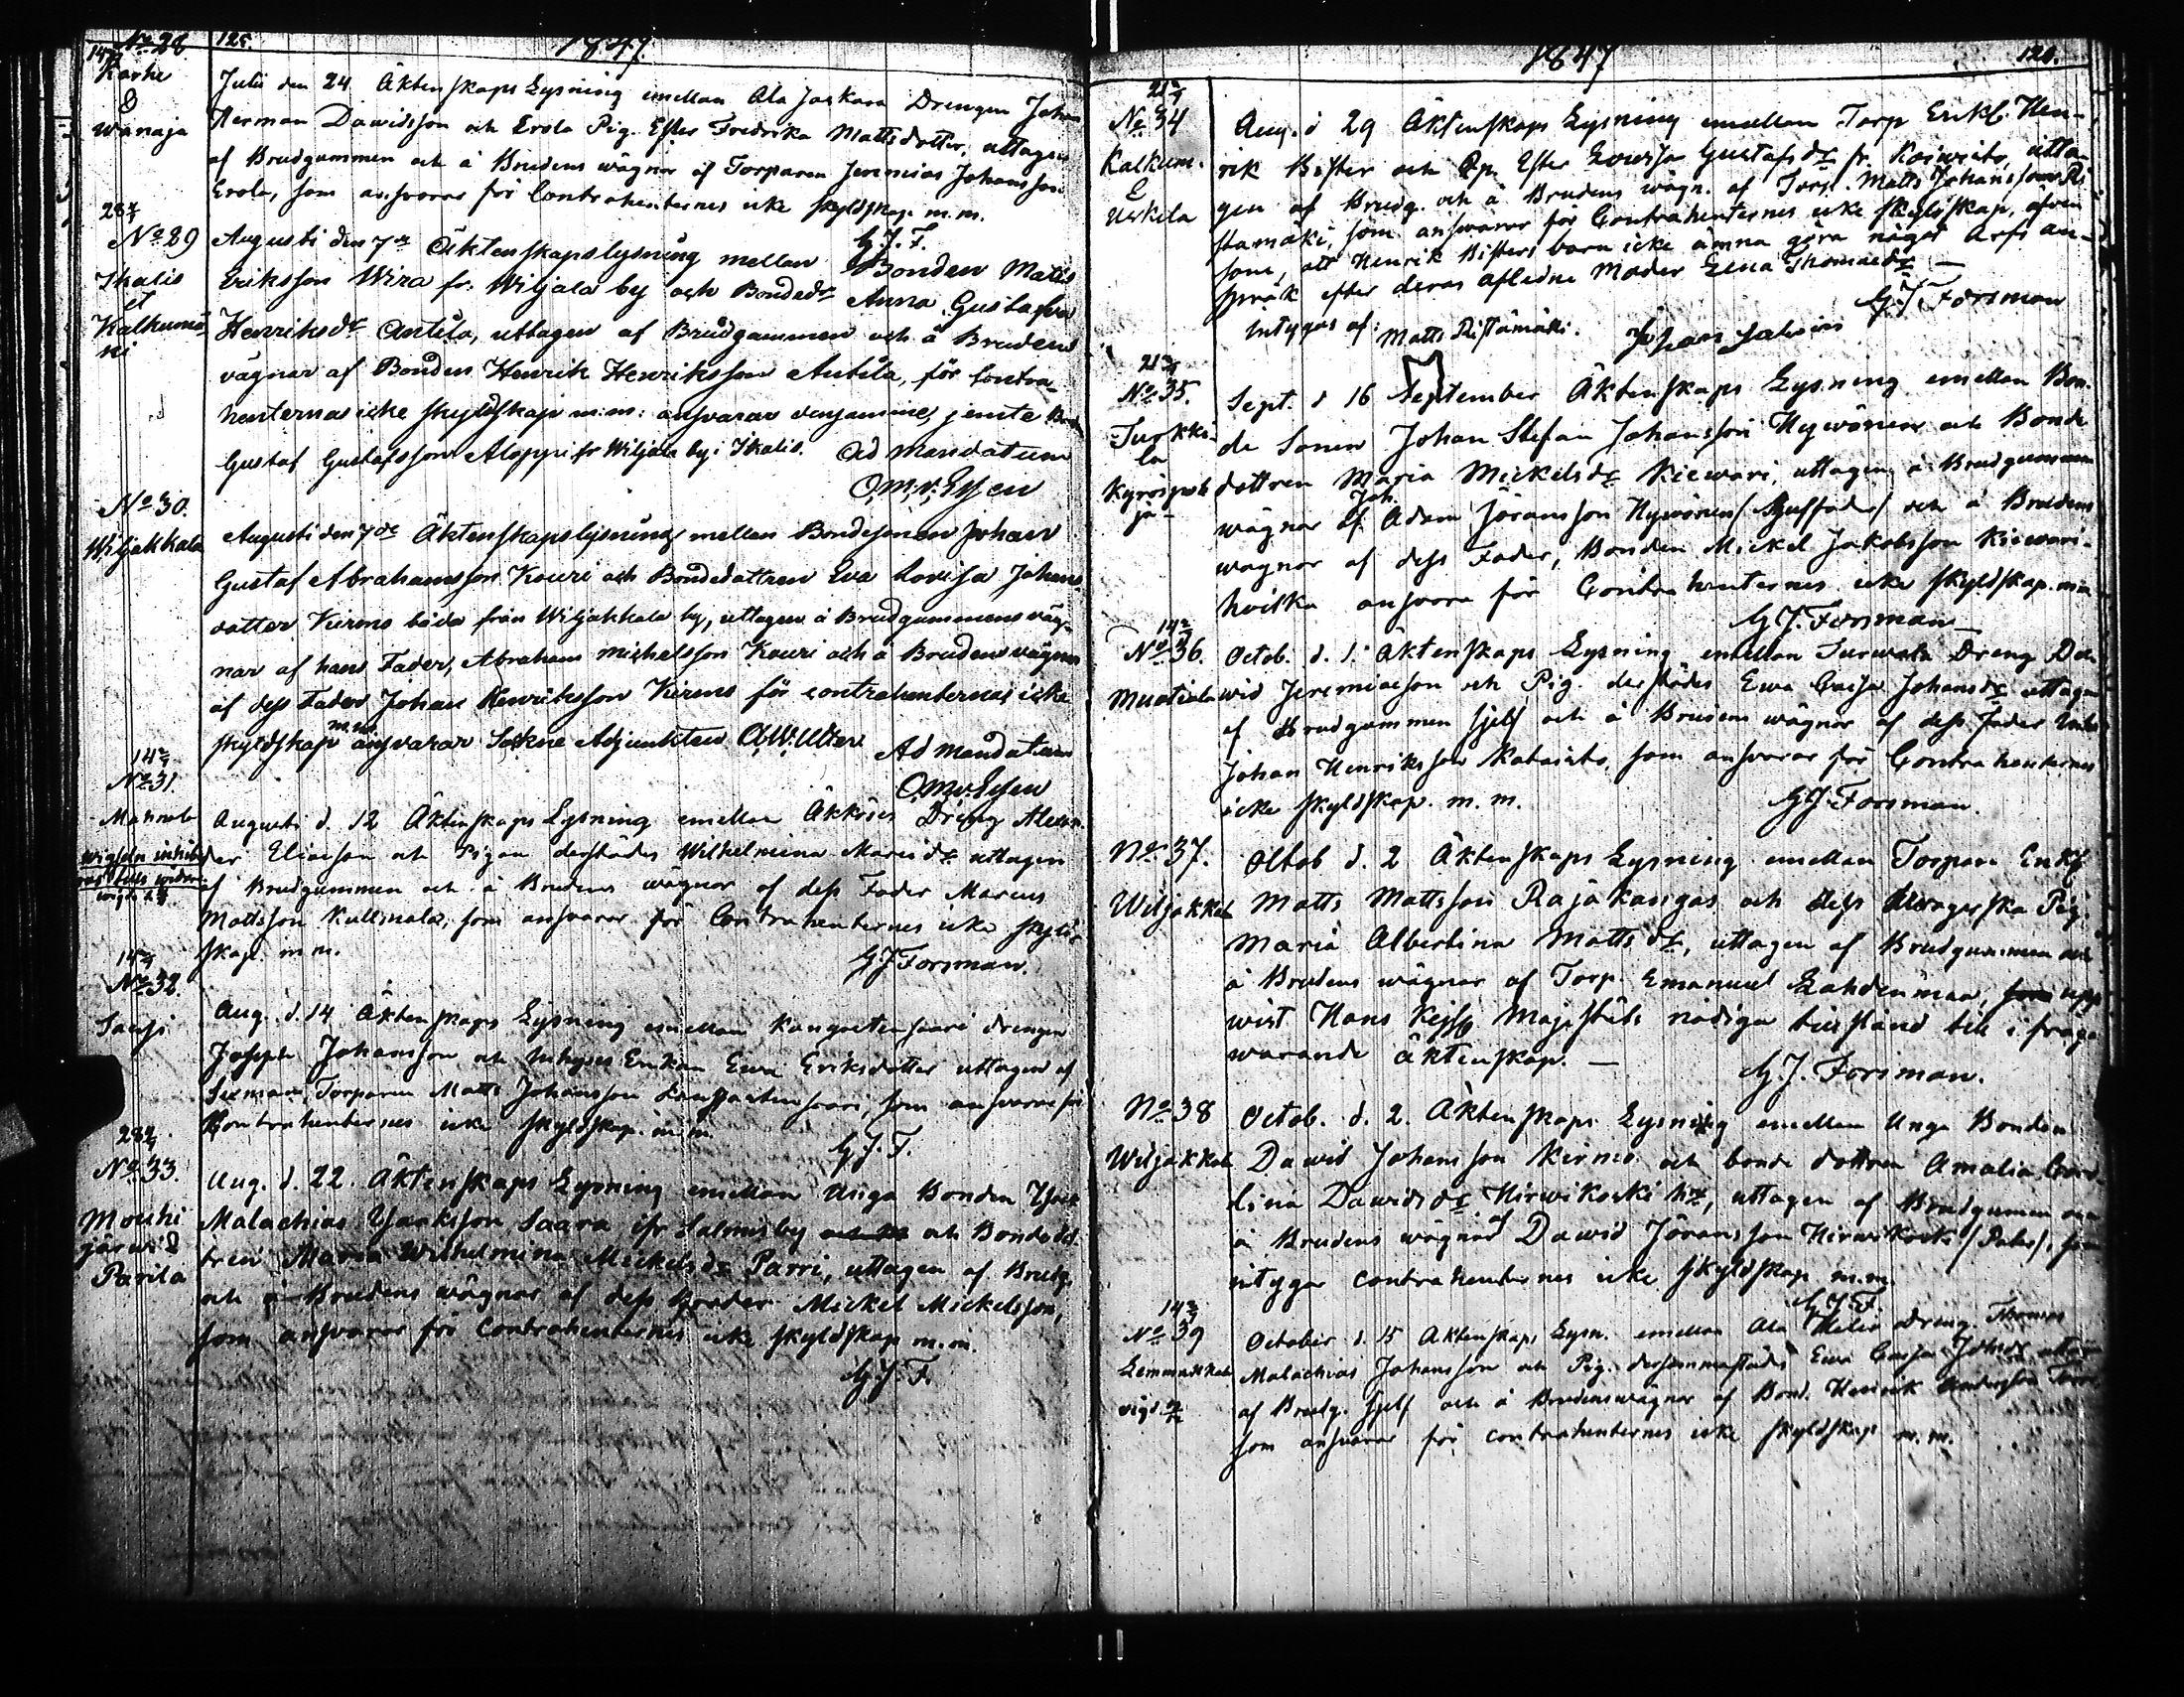 No 28 125. 1847.
Karhe
&
Wanaja
Julii den 24 Äktenskaps Lysning emellan Ala Jaskara Drengen Johan
Herman Dawidsson och Erola Pig. Ester Fredrika Mattsdotter, uttagen
af Brudgummen och å Brudens wägnar af Torparen Jeremias Johansson
Erola, som ansvarar för Contrahenternes icke skyldskap m.m.
G. J. F.
No 29
Ikalis
&
Kalkunmä
ki
Augusti den 7de Äktenskapslysning mellan Bonden Matts
Eriksson Wira fr. Wiljala by och Bondedr Anna Gustafva
Henriksdr Antila, uttagen af Brudgummen och å Brudens
vägnar af Bonden Henrik Henriksson Antila, för Contra-
henternas icke skyldskap m:m: ansvarar densamme, jemte
Gustaf Gustafsson Aloppi fr Wiljala by i Ikalis. Ad Mandatum
O.M.v.Essen
No 30.
Wiljakkala
Augusti den 7de Äktenskapslysning mellan Bondesonen Johan
Gustaf Abrahamsson Kouri och Bondedottren Eva Lovisa Johans
dotter Kirmo båda från Wiljakkala by, uttagen å Brudgummens väg-
nar af hans Fader, Abraham Michelsson Kouri och å Brudens vägnar
af dess Fader Johan Henriksson Kirmo för contrahenternas icke
skyldskap m.m. ansvarar Sockne Adjunkten Ad Mandatum
O.M.v.Essen
No 31.
Augusti d. 12 Äktenskaps Lysning emellan Äkköses Dräng Alexan-
der Eliasson och Pigan derstädes Wilhelmina Marcidr uttagen
af Brudgummen och å Brudens wägnar af dess Fader Marcus
Mattsson Kullmala, som ansvarar för Contrahenternes icke skyld-
skap m m.
G J Forsman.
No 32.
Sasi
Aug. d. 14 Äktenskaps Lysning emellan Kangastensaari drengen
Joseph Johansson och Inhyses Enkan Ewa Eriksdotter uttagen af
Torparen Matts Johansson Kangastensaari, som ansvarar för
Contrahenternes icke skyldskap. m.m.
G. J. F.
No 33.
Mouhi
järwi &
Parila
Aug. d. 22. Äktenskaps Lysning emellan Unga Bonden
Malachias Isaksson Saara ifr Salmis by och Bondedot-
tren Maria Wilhelmina Mickelsdr Parri, uttagen af Brudg.
och å Brudens wägnar af dess Mickel Mickelsson,
som ansvarar för contrahenternes icke skyldskap m.m.
G. J. F.
1847 126.
No 34
Kalkum.
&
Uskela
Aug. d 29 Äktenskaps Lysning emellan Torp Enkl. Hen-
rik Bister och Qp. Ester Lowisa Gustafsdr fr. Koiwisto, utta-
gen af Brudg. och å Brudens wägn. af Torp. Matts Johansson Ri
stamäki, som answarar för Contrahenternes icke skyldskap, äfven
som, att Henrik Bisters barn icke ämna göra något arfs an-
språk efter deras aflidne Moder Lena Thomasdr —
G. J. Forsman
Intygas af: Matts Ristamäki.
No 35.
Turkki-
la
Kyröspoh
ja
Sept. d 16 September Äktenskaps Lysning emellan Bon-
de Sonen Johan Stefan Johansson Hywönen och Bonde
dottren Maria Mickelsdr Kiewari, uttagen å Brudgummens
wägnar af Joh. Adam Jöransson Hywönen (Stuffader) och å Brudens
wägnar af dess Fader, Bonden Mickel Jakobsson Kiewari-
hvilka ansvara för Contrahenternes icke skyldskap. m m
G J. Forsman
No 36.
Muotiala
Octob. d. 1. Äktenskaps Lysning emellan Dreng Da-
wid Jeremiasson och Pig. derstädes Ewa Caisa Johansdr uttagen
af Brudgummen sjelf och å Brudens wägnar af dess Fader
Johan Henriksson Katavisto, som ansvarar för Contrahenternes
icke skyldskap. m. m.
G J Forsman.
No 37.
Wiljakkala
Oktob d. 2 Äktenskaps Lysning emellan Torpare Enkl
Matts Mattsson Rajakangas och dess Pig.
Maria Albertina Mattsdr, uttagen af Brudgummen och
å Brudens wägnar af Torp. Emanuel Lahdenmaa, upp
wist Hans Kejs Majestäts nådiga tillstånd till i fråga
warande äktenskap. —
G. J. Forsman.
No 38
Wiljakkala
Octob. d. 2. Äktenskaps Lysning emellan Unga Bonden
Dawid Johansson Kirmo och bonde dottren Amalia Caro-
lina Dawidsdr Hirwikoski, uttagen af Brudgummen och
å Brudens wägnar Dawid Jöransson Hirwikoski (Pater), som
intygar contrahenternes icke skyldskap m.m.
G. J. F.
No 39
Lemmakkala
October d. 15 Äktenskaps Lysn. emellan Ala dreng Thomas
Malachias Johansson och Pig. dersammastädes Ewa Caisa Johsdr uttagen
af Brudg. sjelf och å Brudens wägnar af Bond. Henrik Andersson
som answarar för contrahenternes icke skyldskap m. m.